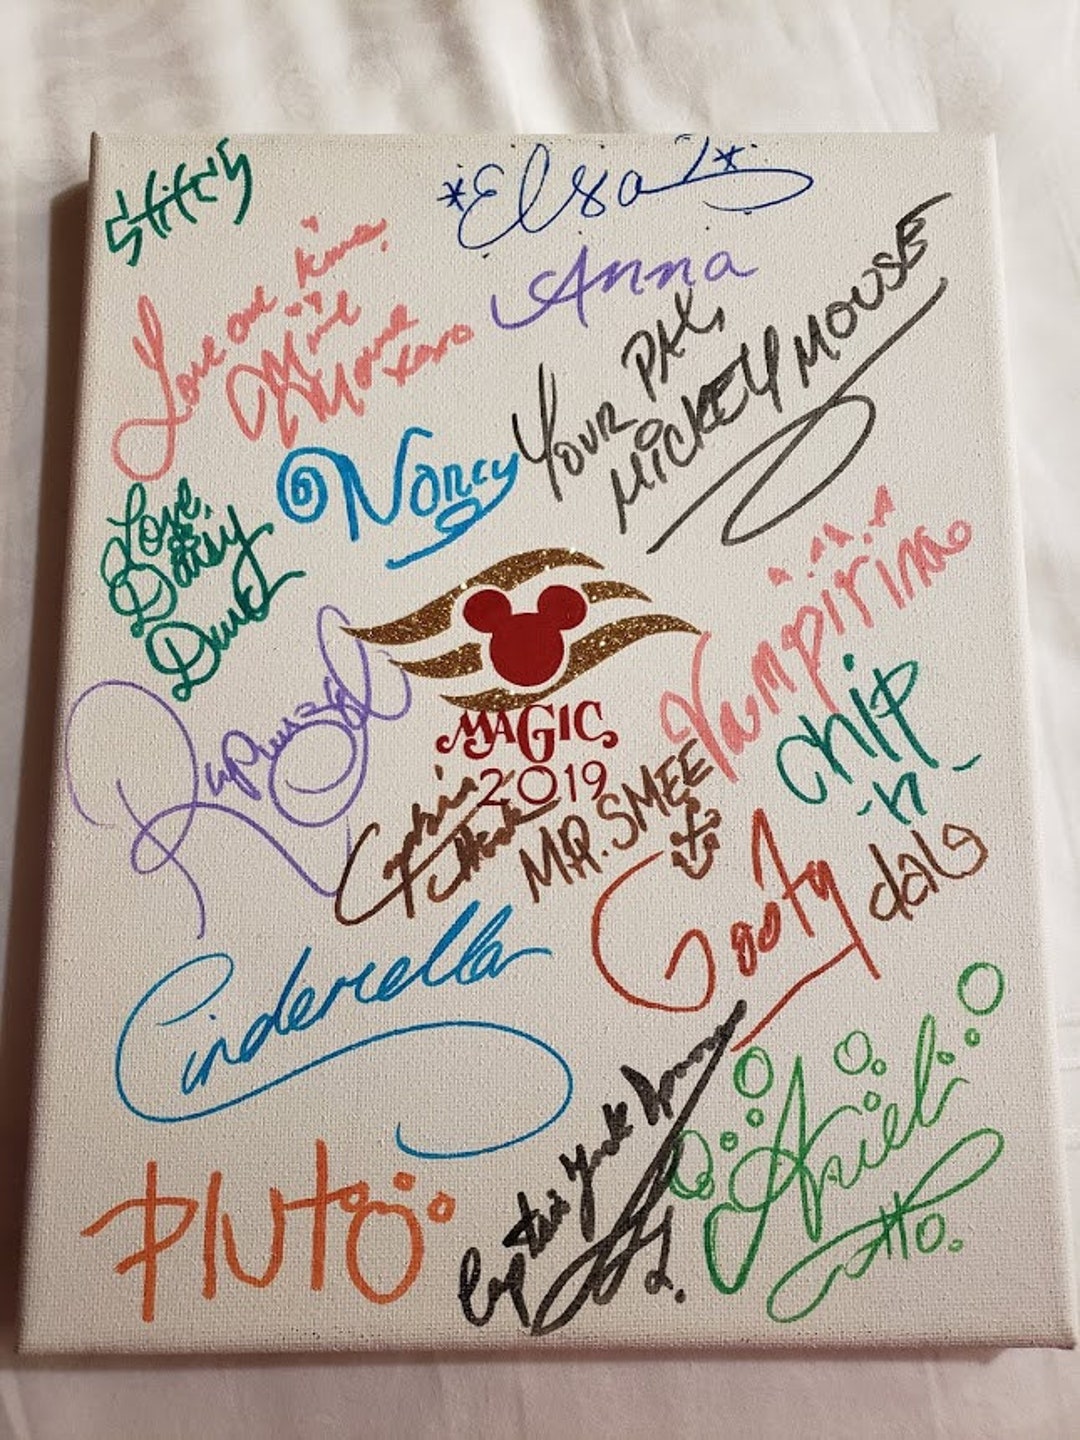 Stitch
*Elsa*
Love and Kisses,
Minnie
Mouse
xoxo
Anna
YOUR PAL,
MICKEY MOUSE
Nancy
Love,
Daisy
Duck
Vampirina
Rapunzel
MAGIC
2019
chip
-n-
dale
Captain
Hook
MR. SMEE
Goofy
Cinderella
Captain Jack Sparrow
Ariel
PLUTO